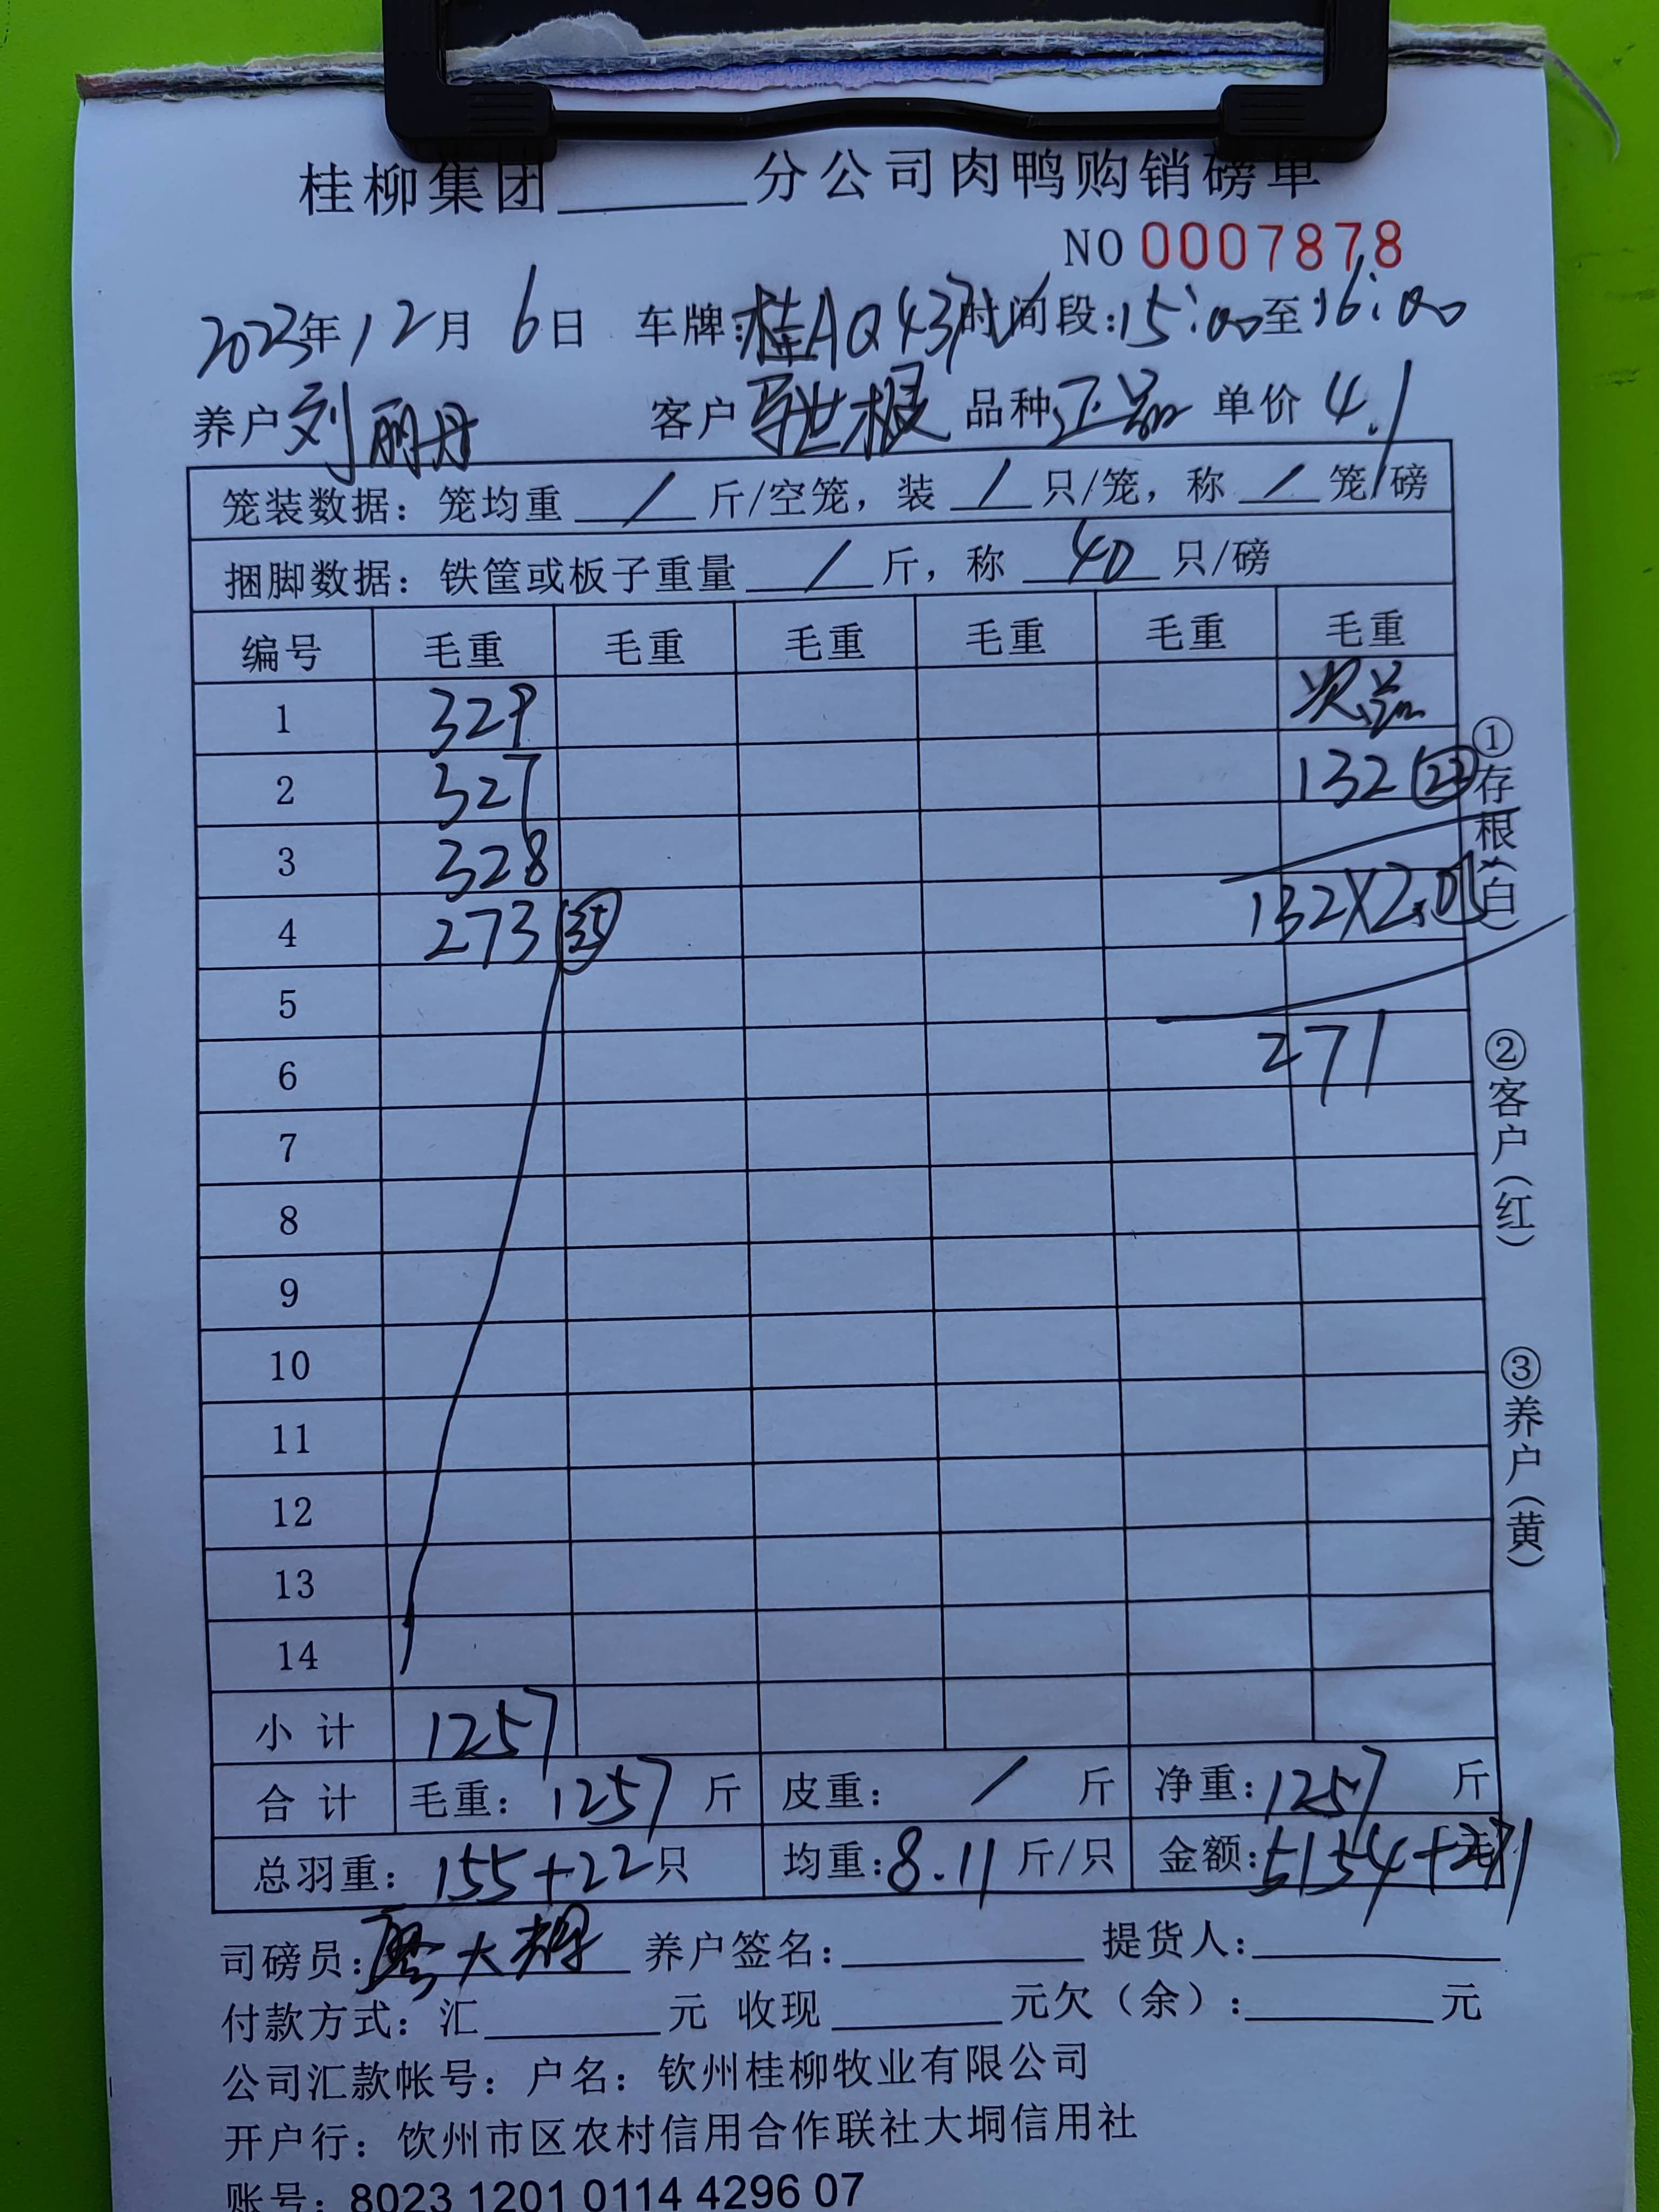 桂柳集团______分公司肉鸭购销磅单
NO 0007878
2023年12月6日 车牌:桂AQ43 时间段:15:00至16:00
养户 刘丽丹 客户 世根 品种 正品 单价 4.1
笼装数据：笼均重 / 斤/空笼，装 / 只/笼，称 / 笼/磅
捆脚数据：铁筐或板子重量 / 斤，称 40 只/磅
编号 毛重 毛重 毛重 毛重 毛重 毛重
1 329 次品
2 327 132 22
3 328
4 273 35 132X2.05
5
6 271
7
8
9
10
11
12
13
14
小计 1257
合计 毛重：1257 斤 皮重： / 斤 净重：1257 斤
总羽重：155+22只 均重:8.11斤/只 金额:5154+271
司磅员:廖大 养户签名:______ 提货人:______
付款方式：汇______元 收现______元欠（余）:______元
公司汇款帐号：户名：钦州桂柳牧业有限公司
开户行：饮州市区农村信用合作联社大垌信用社
账号：8023 1201 0114 4296 07
①存根(白)
②客户(红)
③养户(黄)